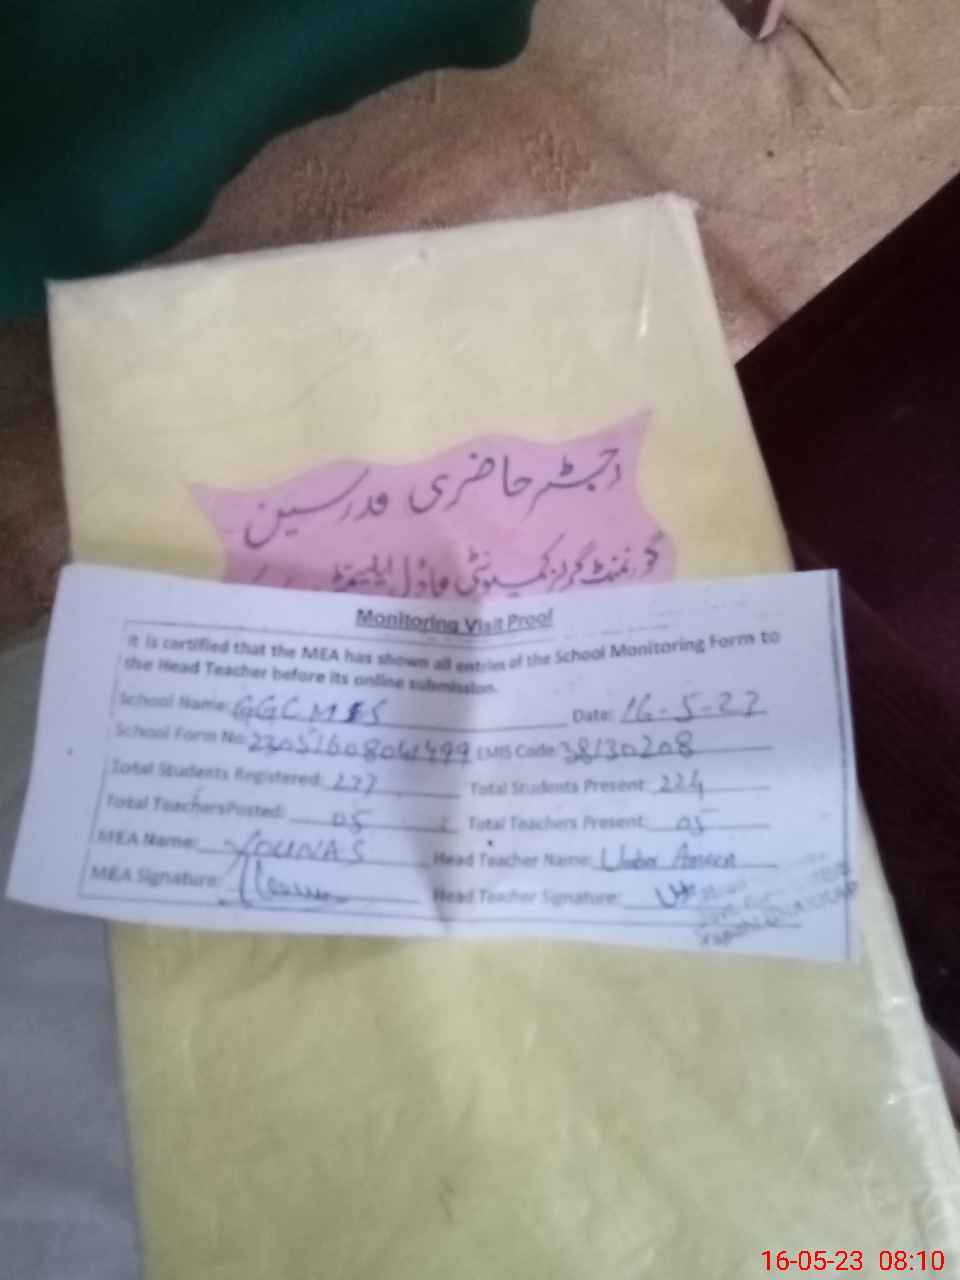 رجسٹر حاضری مدرسین
گورنمنٹ گرلز کمیونٹی ماڈل ایلیمنٹری
Monitoring Visit Proof
It is certified that the MEA has shown all entries of the School Monitoring Form to
the Head Teacher before its online submission.
School Name: GGCMES Date: 16-5-23
School Form No: EMIS Code: 38130208
Total Students Registered: 277 Total Students Present: 224
Total TeachersPosted: 05 Total Teachers Present: 05
MEA Name: YOUNAS Head Teacher Name:
MEA Signature: Head Teacher Signature:
16-05-23 08:10